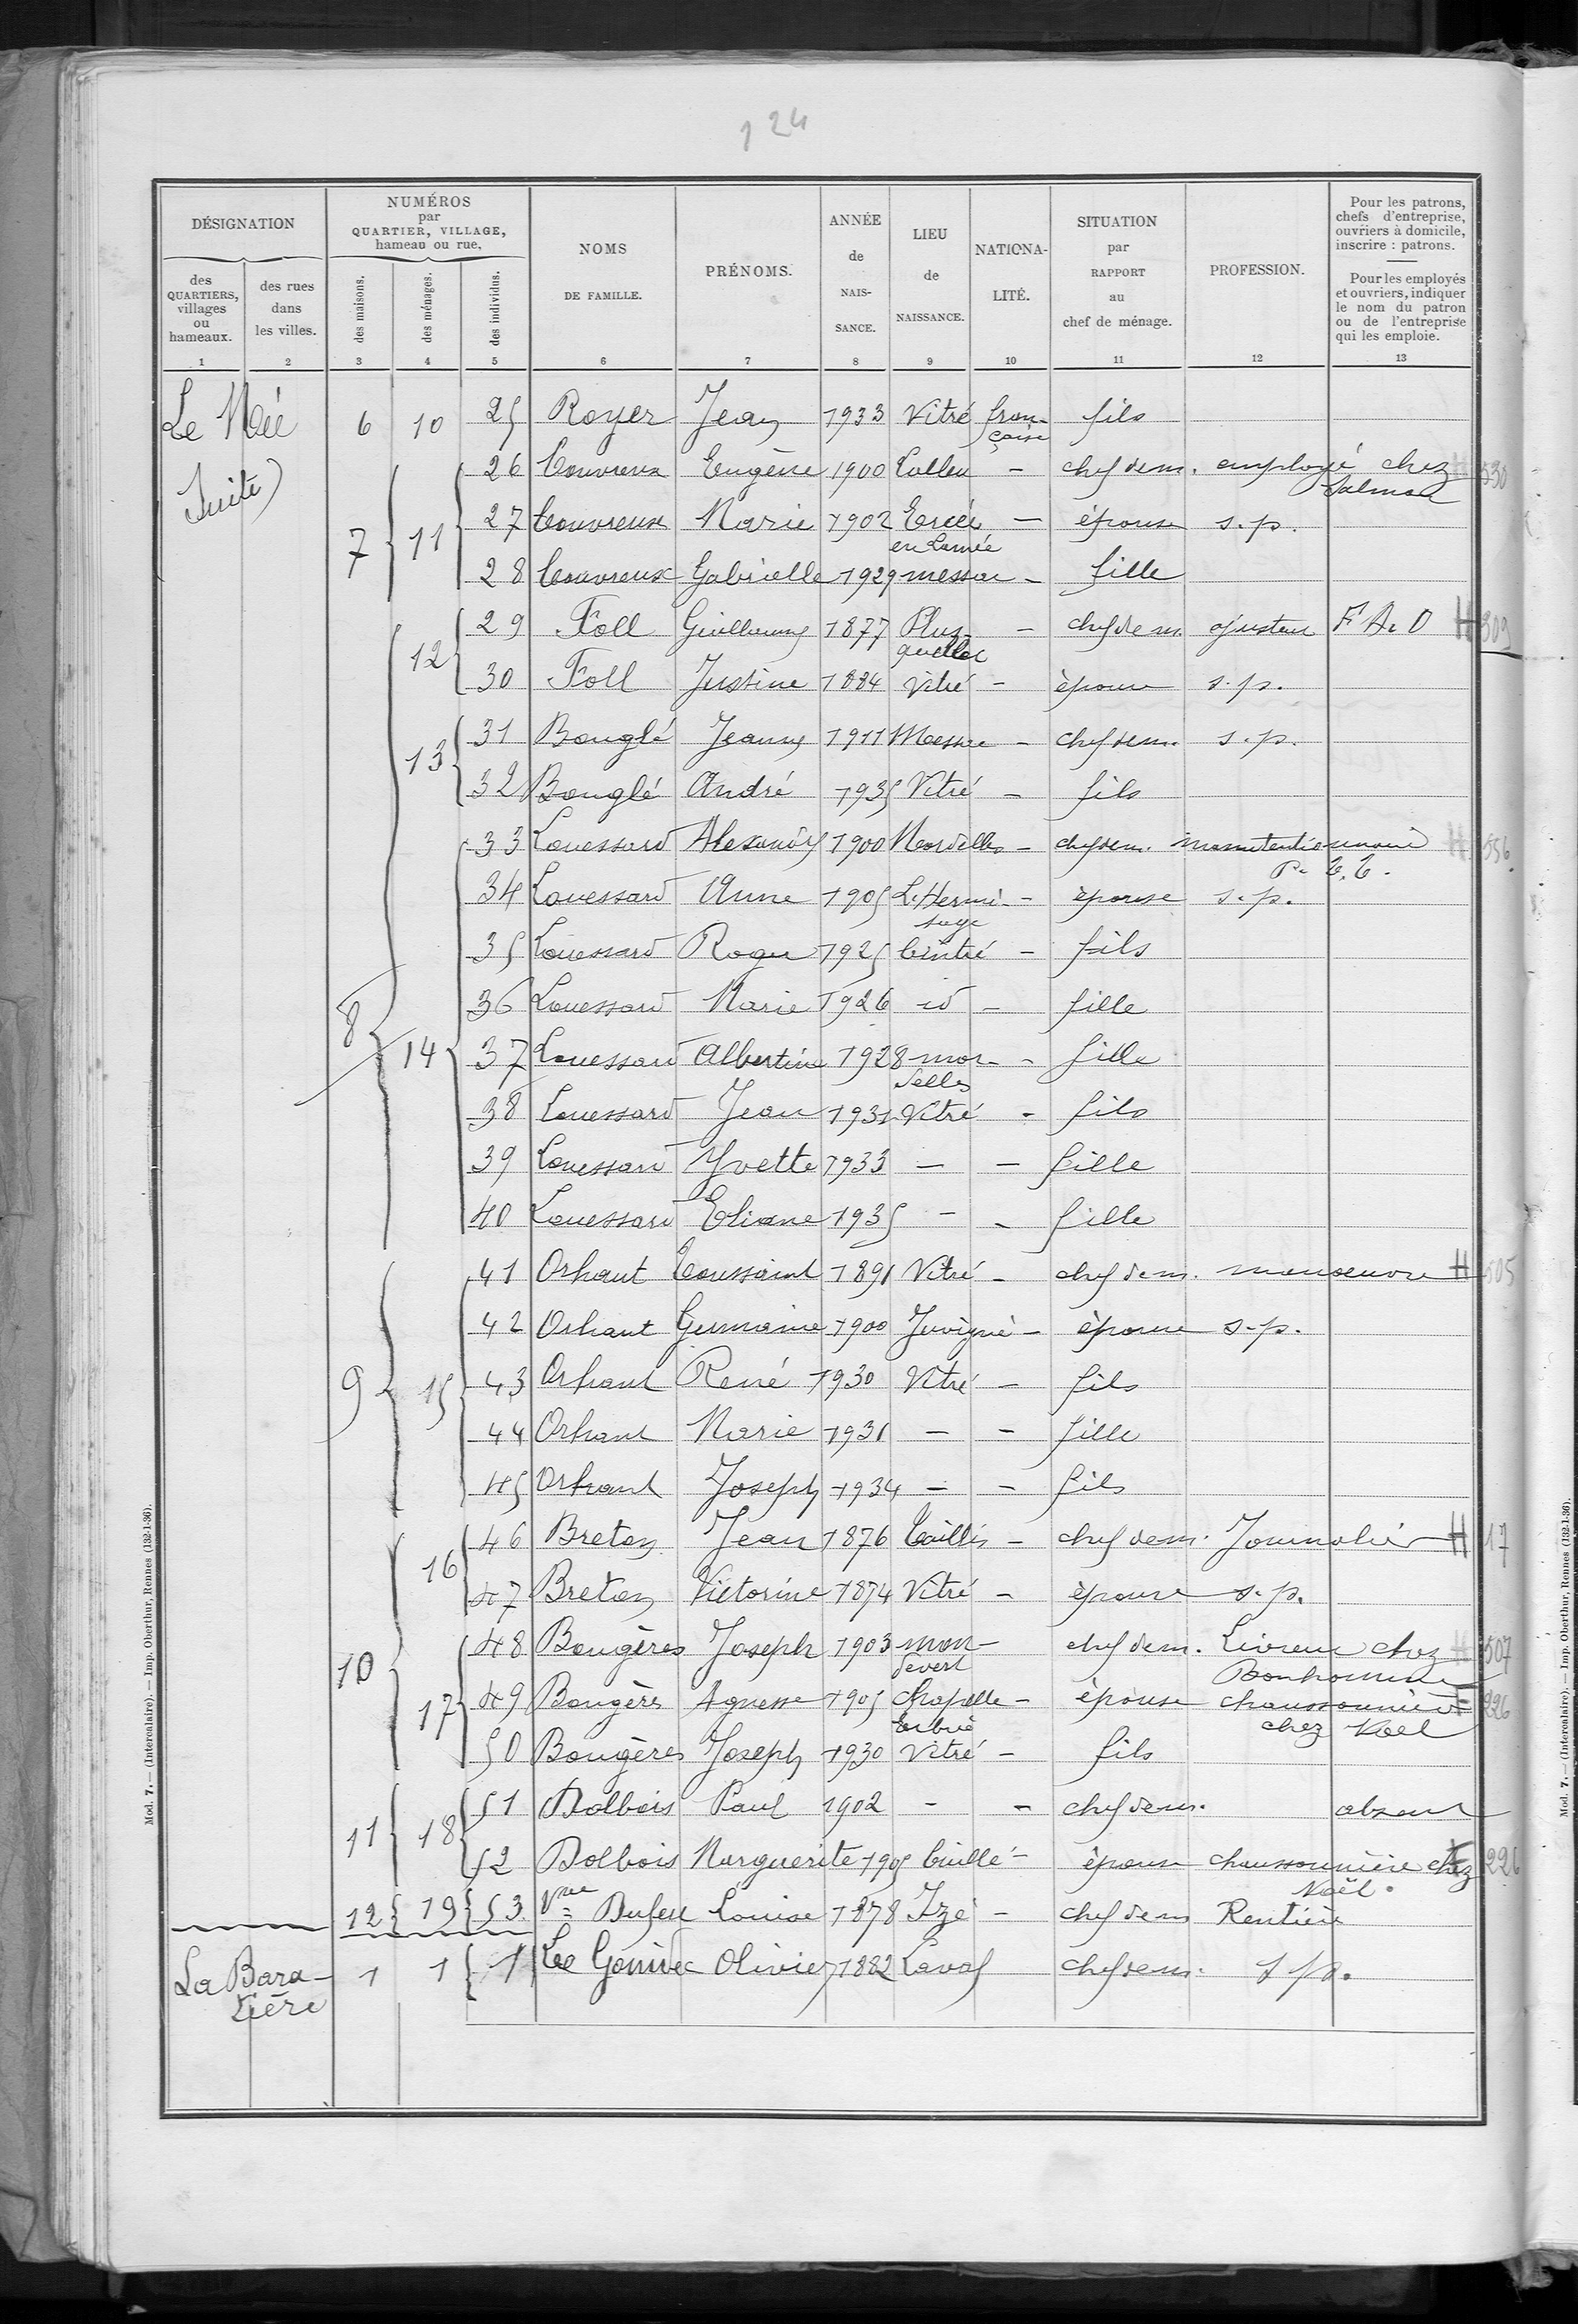 124
DÉSIGNATION
NUMÉROS
par
QUARTIER, VILLAGE,
hameau ou rue.
NOMS
DE FAMILLE.
PRÉNOMS.
ANNÉE
de
NAIS-
SANCE.
LIEU
de
NAISSANCE.
NATIONA-
LITÉ.
SITUATION
par
RAPPORT
au
chef de ménage.
PROFESSION.
Pour les patrons,
chefs d'entreprise,
ouvriers à domicile,
inscrire : patrons.
Pour les employés
et ouvriers, indiquer
le nom du patron
ou de l'entreprise
qui les emploie.
des
QUARTIERS,
villages
ou
hameaux.
des rues
dans
les villes.
des maisons.
des ménages.
des individus.
1 2 3 4 5 6 7 8 9 10 11 12 13
Le Mée 6 10 25 Royer Jean 1933 Vitré fran- fils
çaise
Suite)
26 Couvreux Eugène 1900 chef de m. employé chez 530
Salmon
7 11 27 Couvreux Marie 1902 Ercée - épouse s.p.
en Lamée
28 Couvreux Gabrielle 1929 messac - fille
12 29 Foll Guillaume 1877 Plus- - chef de m. ajusteur F A. D H 309
quellec
30 Foll Justine 1884 Vitré - épouse s.p.
13 31 Bouglé Jeanne 1911 Messac - chef de m. s.p.
32 Bouglé André 1935 Vitré - fils
33 Louessard Alexandre 1900 Mordelles - chef de m. manutentionnaire H 556
P. T. T.
34 Louessard Anne 1905 L'Hermi- - épouse s.p.
tage
35 Louessard Roger 1925 Cintré - fils
36 Louessard Marie 1926 id - fille
8 14 37 Louessard Albertine 1928 mor- - fille
delles
38 Louessard Jean 1931 Vitré - fils
39 Louessard Yvette 1933 - - fille
40 Louessard Eliane 1935 - - fille
41 Orhant Toussaint 1891 Vitré - chef de m. manoeuvre H 505
42 Orhant Germaine 1900 Juvigné - épouse s.p.
9 15 43 Orhant René 1930 Vitré - fils
44 Orhant Marie 1931 - - fille
45 Orhant Joseph 1934 - - fils
16 46 Breton Jean 1876 Taillis - chef de m. Journalier H 17
47 Breton Victorine 1874 Vitré - épouse s.p.
10 48 Bougères Joseph 1903 mon- chef de m. Livreur chez H 507
devert Bonhomme
17 49 Bougères Agnesse 1905 Chapelle - épouse chaussonnière 226
Erbrée chez Noël
50 Bougères Joseph 1930 Vitré - fils
11 18 51 Dolbois Paul 1902 - - chef de m. absent
52 Dolbois Marguerite 1905 Cuillé - épouse chaussonnière chez 226
Noël.
12 19 53 Vve Dufeu Louise 1878 Izé - chef de m Rentière
La Bara- 1 1 1 Le Gonidec Olivier 1882 Laval chef de m. s.p.
tière
Mod. 7. — (Intercalaire). — Imp. Oberthur, Rennes (132-1-36).
Mod. 7. — (Intercalaire). — Imp. Oberthur, Rennes (132-1-36).